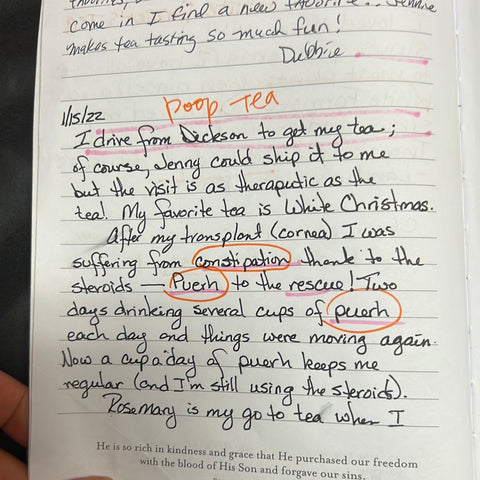 come in I find a new favorite.. Jennie
makes tea tasting so much fun!
Debbie
Poop Tea
1/15/22
I drive from Dickson to get my tea;
of course, Jenny could ship it to me
but the visit is as theraputic as the
tea! My favorite tea is White Christmas.
After my transplant (cornea) I was
suffering from constipation thanks to the
steroids — Puerh to the rescue! Two
days drinking several cups of puerh
each day and things were moving again.
Now a cup a day of puerh keeps me
regular (and I'm still using the steroids).
Rosemary is my go to tea when I
He is so rich in kindness and grace that He purchased our freedom
with the blood of His Son and forgave our sins.